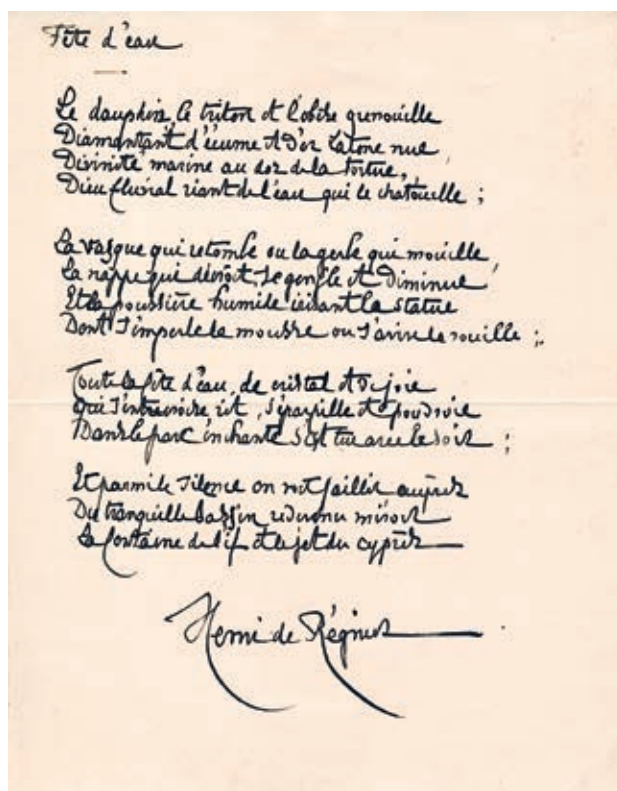 Fête d'eau
Le dauphin, le triton et l'obèse grenouille
Diamantant d'écume et d'or Latone nue,
Divinité marine au dos de la tortue,
Dieu fluvial riant de l'eau qui le chatouille ;
La vasque qui retombe ou la gerbe qui mouille,
La nappe qui décroît, se gonfle et diminue
Et la poussière humide irisant la statue
Dont s'emperle la mousse ou s'avive la rouille ;
Toute la fête d'eau, de cristal et de joie
Qui s'entrecroise, rit, s'éparpille et poudroie
Dans le parc enchanté s'est tue avec le soir ;
Et parmi le silence on voit jaillir auprès
Du tranquille bassin redevenu miroir
La fontaine de l'if et le jet du cyprès
Henri de Régnier